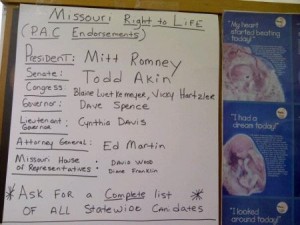 Missouri Right to Life
(P.A.C Endorsements)
President: Mitt Romney
Senate: Todd Akin
Congress: Blaine Luetkemeyer, Vicky Hartzler
Governor: Dave Spence
Lieutenant Governor: Cynthia Davis
Attorney General: Ed Martin
Missouri House of Representatives: David Wood
Diane Franklin
* Ask for a Complete list *
of all Statewide Candidates
"My heart
started beating
today!"
"I had a
dream today"
"I looked
around today!"